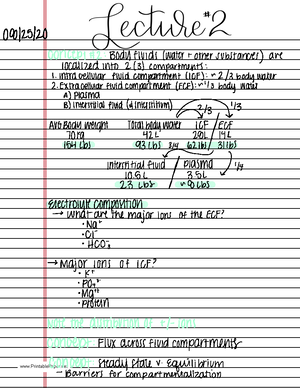 Lecture #2
09/25/20
Body fluids (water + other substances) are
localized into 2 (3) compartments:
1. Intracellular fluid compartment (ICF): ~ 2/3 body water
2. Extracellular fluid compartment (ECF): ~ 1/3 body water
A) Plasma
B) Interstitial fluid (& interstitium)
2/3 1/3
Avg Body Weight Total body water ICF / ECF
70 kg 42L 28L / 14L
154 lbs 93 lbs 62 lbs / 31 lbs
3/4 1/4
Interstitial fluid / plasma
10.5 L 3.5L
23 lbs ~8 lbs
Electrolyte Composition
→ What are the major ions of the ECF?
• Na⁺
• Cl⁻
• HCO₃⁻
→ Major ions of ICF?
• K⁺
• Mg⁺⁺
• Protein
Flux across fluid compartments
Steady State v. Equilibrium
→ Barriers for compartmentalization